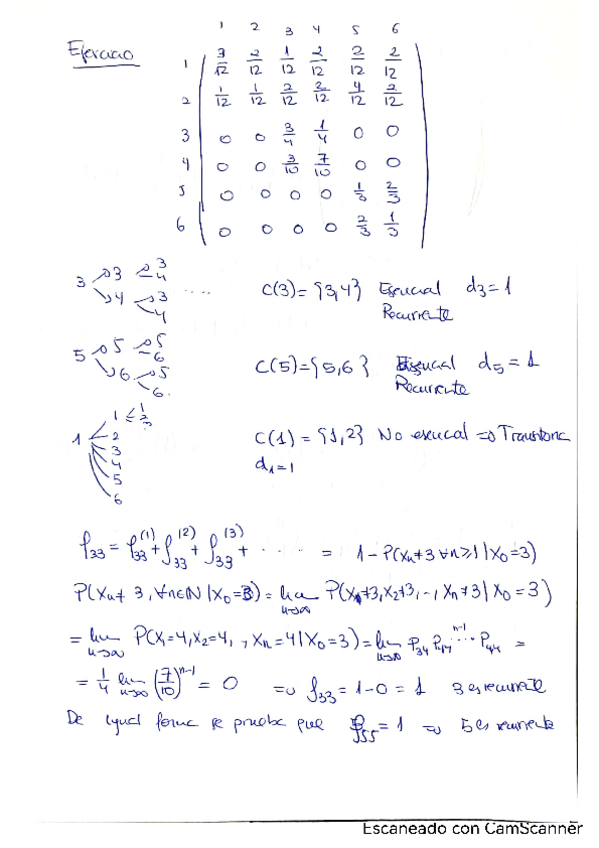 1 2 3 4 5 6
Ejercicio
1 3/12 2/12 1/12 2/12 2/12 2/12
2 1/12 1/12 2/12 2/12 4/12 2/12
3 0 0 3/4 1/4 0 0
4 0 0 3/10 7/10 0 0
5 0 0 0 0 1/3 2/3
6 0 0 0 0 2/3 1/3
3 → 3 → 3 4
→ 4 → 3 4 ....
C(3) = {3,4} Esencial d₃ = 1
Recurrente
5 → 5 → 5 6
→ 6 → 5 6
C(5) = {5,6} Esencial d₅ = 1
Recurrente
1 1 2 3 4 5 6
C(1) = {1,2} No esencial ⇒
d₁ = 1
f₃₃ = f₃₃⁽¹⁾ + f₃₃⁽²⁾ + f₃₃⁽³⁾ + ...... = 1 - P(Xₙ ≠ 3 ∀n ≥ 1 | X₀ = 3)
P(Xₙ ≠ 3, ∀n∈N | X₀ = 3) = lim n→∞ P(X₁ ≠ 3, X₂ ≠ 3, .., Xₙ ≠ 3 | X₀ = 3)
= lim n→∞ P(X₁ = 4, X₂ = 4, .., Xₙ = 4 | X₀ = 3) = lim n→∞ P₃₄ P₄₄ ⁿ⁻¹··· P₄₄ =
= 1/4 lim n→∞ (7/10)ⁿ⁻¹ = 0 ⇒ f₃₃ = 1 - 0 = 1 3 es recurrente
De igual forma se prueba que f₅₅ = 1 ⇒ 5 es recurrente
Escaneado con CamScanner